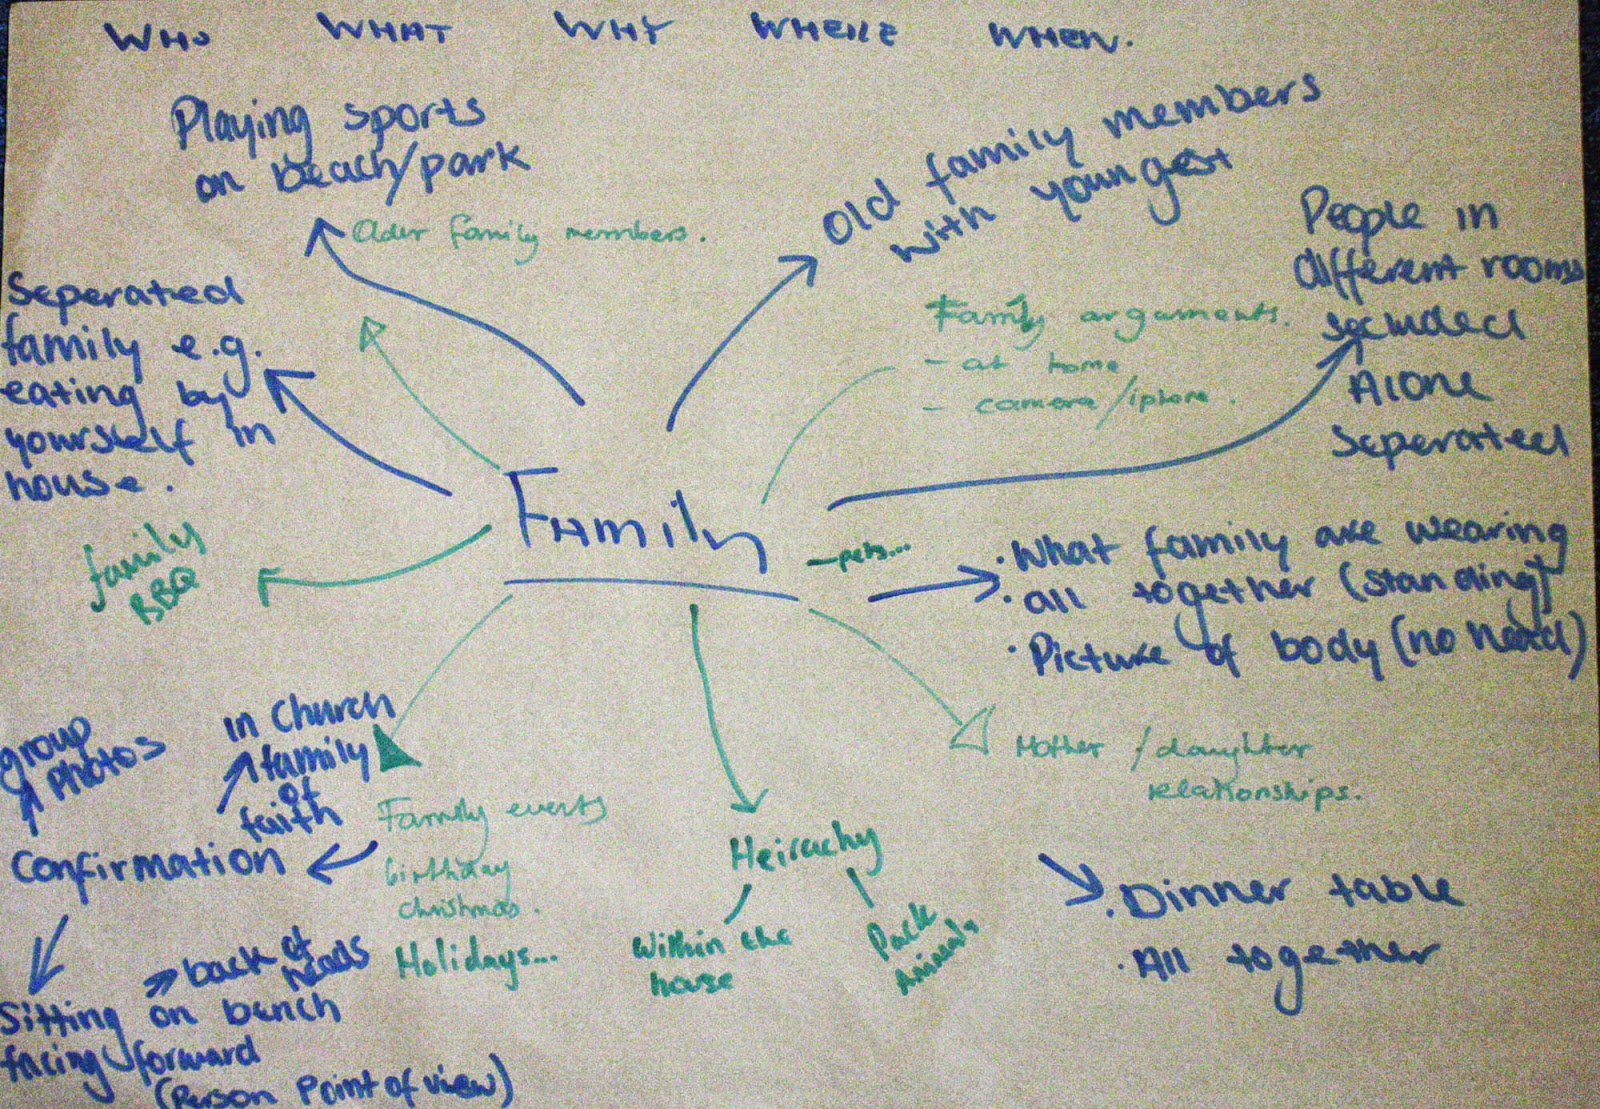 WHO WHAT WHY WHERE WHEN.
Playing sports
on beach/park
Older family members.
Old family members
with youngest
People in
different rooms
secluded
Alone
Seperated
Seperated
family e.g.
eating by
yourself in
house.
Family arguments.
- at home
- camera/iphone.
Family
-pets...
family
BBQ
· What family are wearing
· all together (standing)
· Picture of body (no head)
Mother / daughter
relationships.
in Church
family
of
faith
group
photos
Confirmation
Family events
birthday
christmas.
Holidays...
Heirachy
Within the
house
Pack
Animals
· Dinner table
· All together
back of
heads
Sitting on bench
facing forward
(Person Point of view)